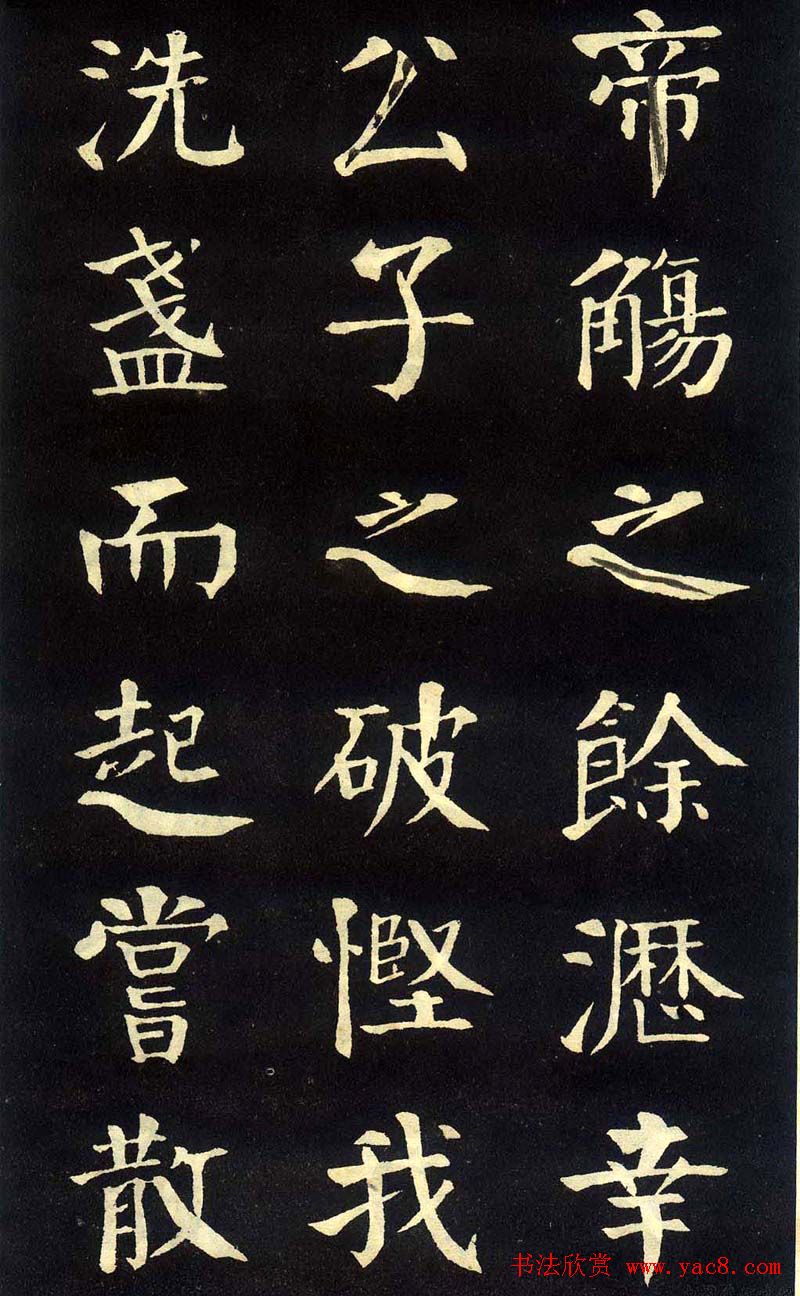 帝觴之餘瀝幸
公子之破慳我
洗盞而起嘗散
书法欣赏 www.yac8.com